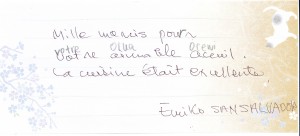 Mille mercis pour
votre aimable acceuil.
La cuisine était excellente.
Emiko SANSALVADOR